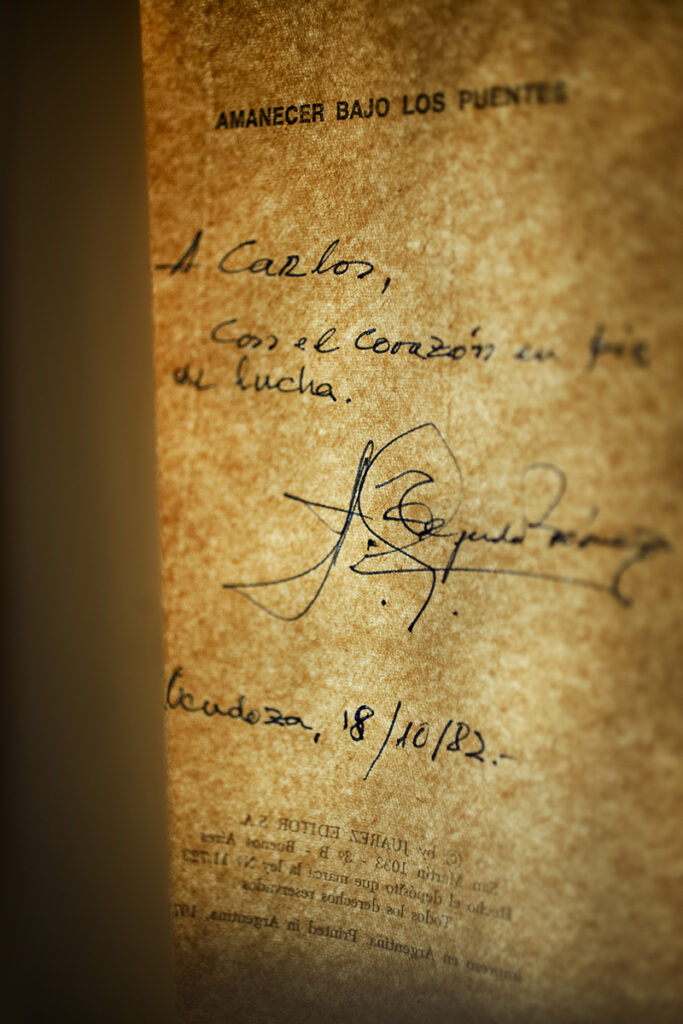 AMANECER BAJO LOS PUENTES
A Carlos,
Con el corazón en pie
de lucha.
Mendoza, 18/10/82.-
(C) by JUAREZ EDITOR S.A.
San Martín 1033 - 3º B - Buenos Aires
Hecho el depósito que marca la ley Nº 11.723
Todos los derechos reservados
Impreso en Argentina, Printed in Argentina, 197